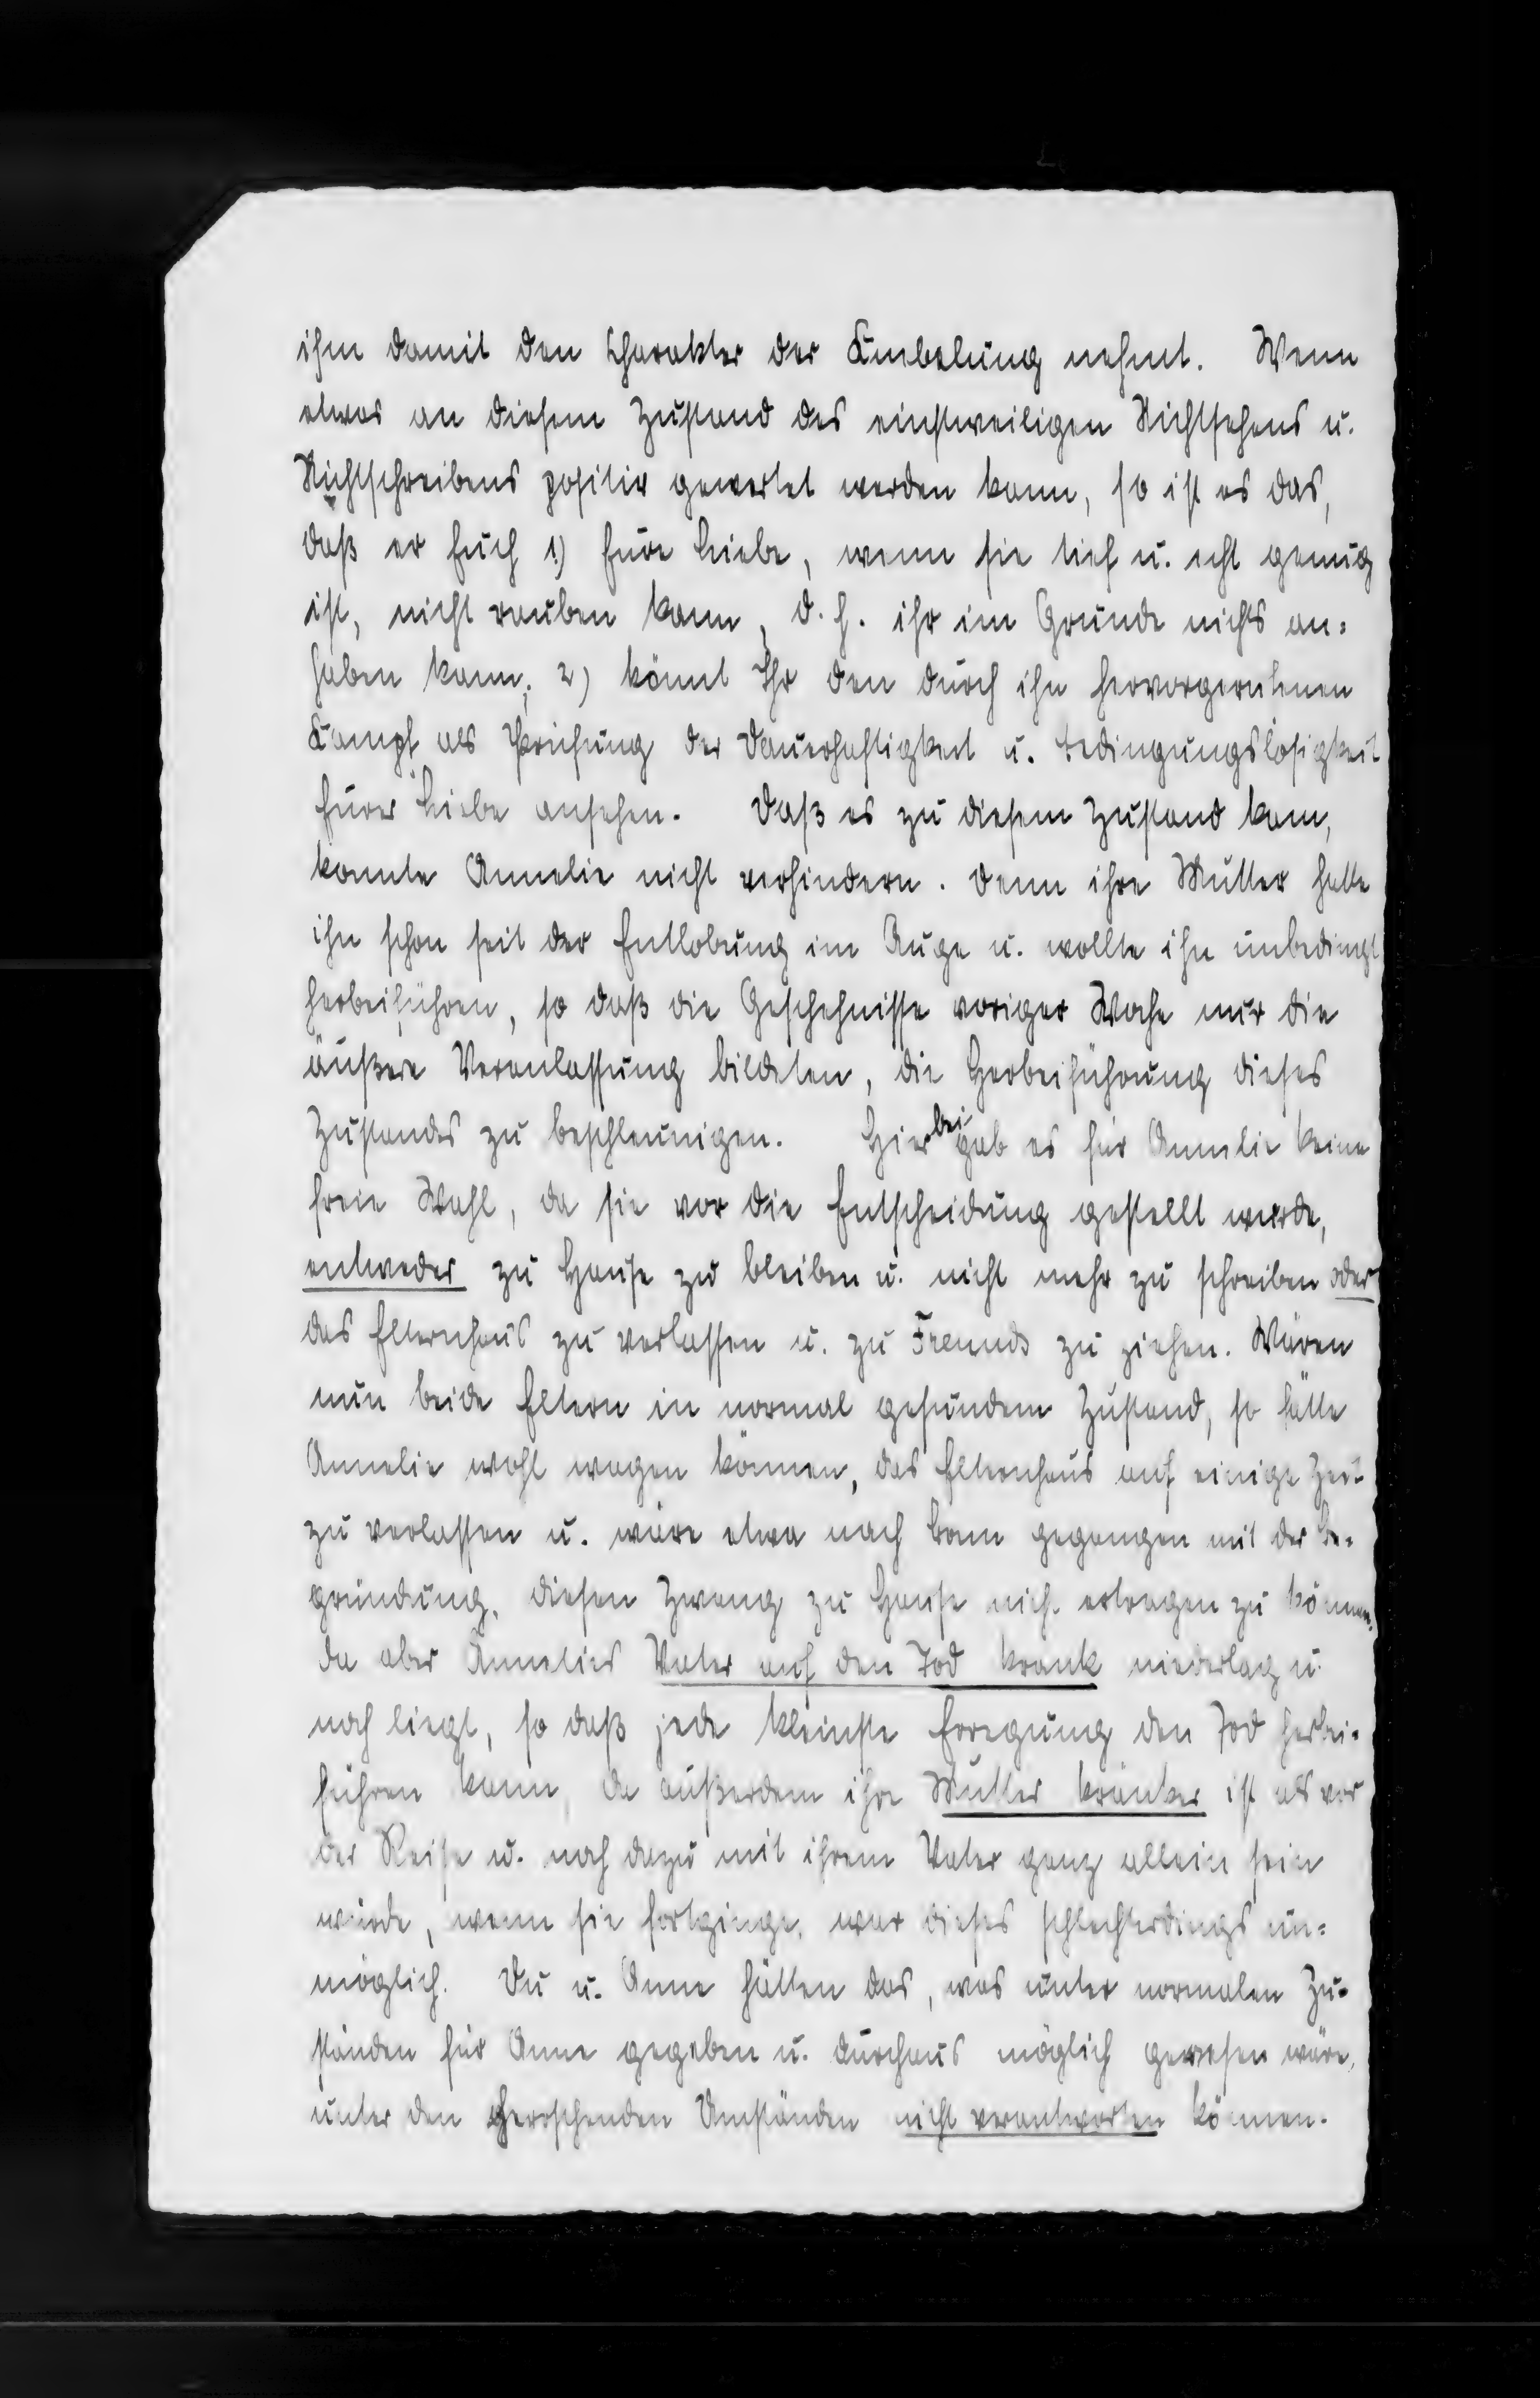 ihm damit den Charakter der Quälung nehmt. Wenn
etwas an diesem Zustand des einstweiligen Nichtsehens u.
Nichtschreibens positiv gewertet werden kann, so ist es das,
daß er Euch 1.) Eure Liebe, wenn sie tief u. echt genug
ist, nicht rauben kann, d. h. ihr im Grunde nichts an=
haben kann; 2) könnt Ihr den durch ihn hervorgerufenen
Kampf als Prüfung der Dauerhaftigkeit u. Bedingungslosigkeit
Eurer Liebe ansehen. Daß es zu diesem Zustand kam,
konnte Annelie nicht verhindern. Denn ihre Mutter hatte
ihn schon seit der Entlobung im Auge u. wollte ihn unbedingt
herbeiführen, so daß die Geschehnisse voriger Woche nur die
äußere Veranlassung bildeten, die Herbeiführung dieses
Zustandes zu beschleunigen. Hierbei gab es für Annelie keine
freie Wahl, da sie vor die Entscheidung gestellt wurde,
entweder zu Hause zu bleiben u. nicht mehr zu schreiben oder
das Elternhaus zu verlassen u. zu Freunds zu ziehen. Wären
nun beide Eltern in normal gesundem Zustand, so hätte
Annelie wohl wagen können, das Elternhaus auf einige Zeit
zu verlassen u. wäre etwa nach Bonn gegangen mit der Be=
gründung, diesen Zwang zu Hause nicht ertragen zu können.
Da aber Annelies Vater auf den Tod krank niederlag u.
noch liegt, so daß jede kleinste Erregung den Tod herbei=
führen kann, da außerdem ihre Mutter kränker ist als vor
der Reise u. noch dazu mit ihrem Vater ganz allein sein
würde, wenn sie fortginge, war dieses schlechterdings un=
möglich. Du u. Anne hätten das, was unter normalen Zu=
ständen für Anne gegeben u. durchaus möglich gewesen wäre,
unter den herrschenden Umständen nicht verantworten können.